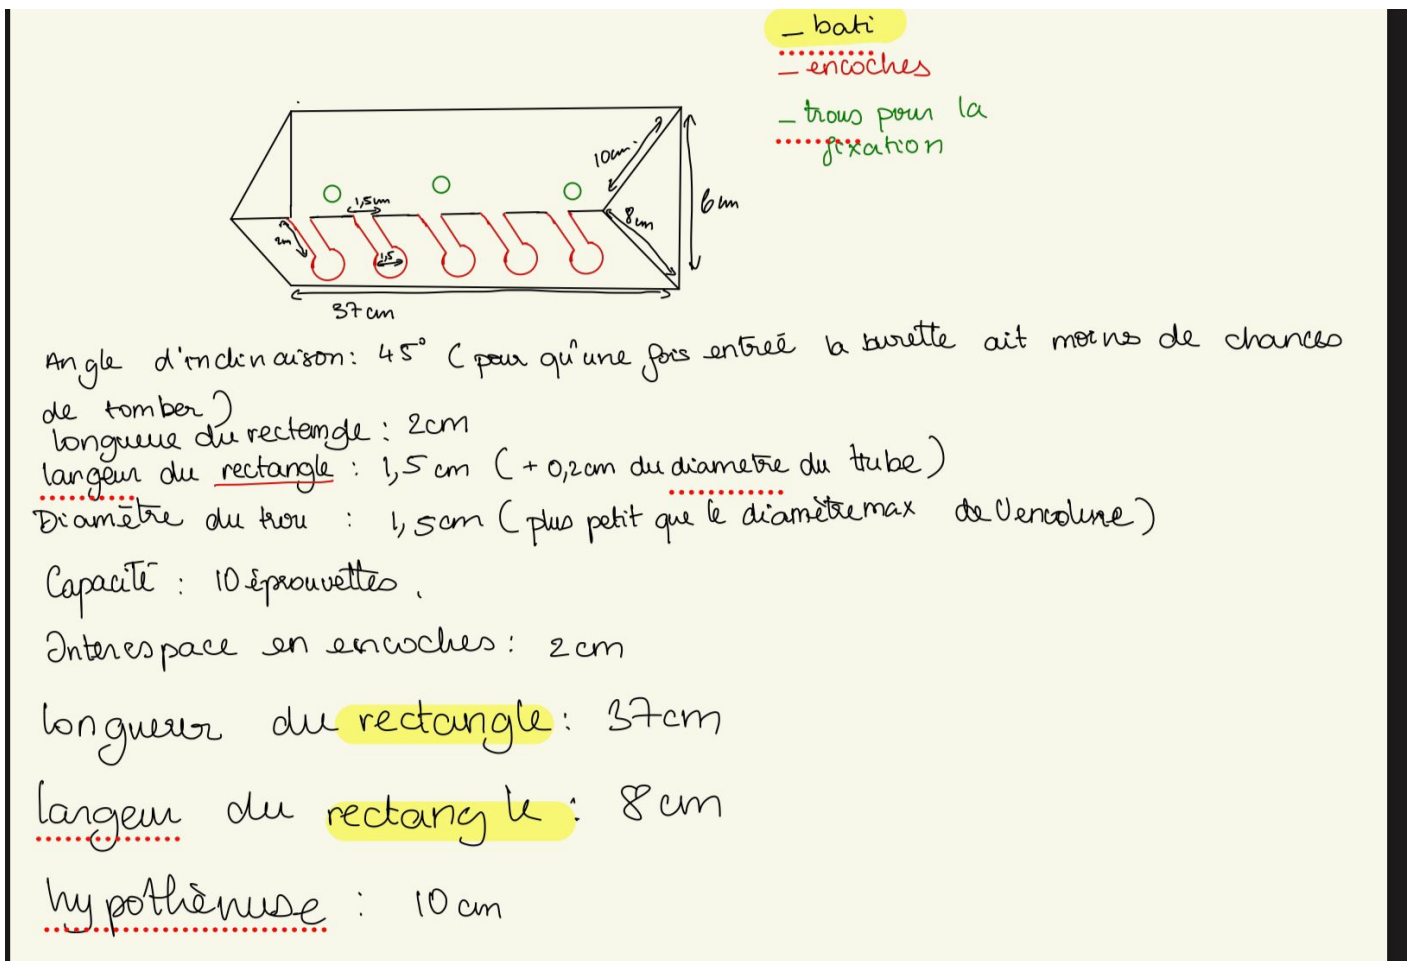 - bati
- encoches
- trous pour la
fixation
10cm
1,5cm
8cm
6cm
2cm
1,5
37cm
Angle d'inclinaison: 45° (pour qu'une fois entreé la burette ait moins de chances
de tomber)
longueur du rectangle : 2cm
largeur du rectangle : 1,5cm (+0,2cm du diametre du tube)
Diamètre du trou : 1,5cm (plus petit que le diamètre max de l'encolure)
Capacité : 10 éprouvettes.
Interespace en encoches: 2cm
longueur du rectangle: 37cm
largeur du rectangle: 8cm
hypothènuse : 10cm